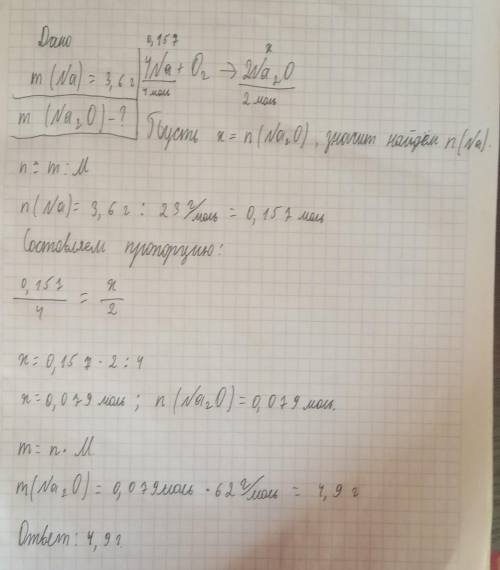 Дано
0,157 x
m (Na) = 3,6 г 4Na + O₂ → 2Na₂O
4 моль 2 моль
m (Na₂O) - ?
Пусть x = n(Na₂O), значит найдём n(Na).
n = m : M
n(Na) = 3,6 г : 23 г/моль = 0,157 моль
Составляем пропорцию:
0,157/4 = x/2
x = 0,157 · 2 : 4
x = 0,079 моль ; n(Na₂O) = 0,079 моль.
m = n · M
m(Na₂O) = 0,079 моль · 62 г/моль = 4,9 г
Ответ: 4,9 г.